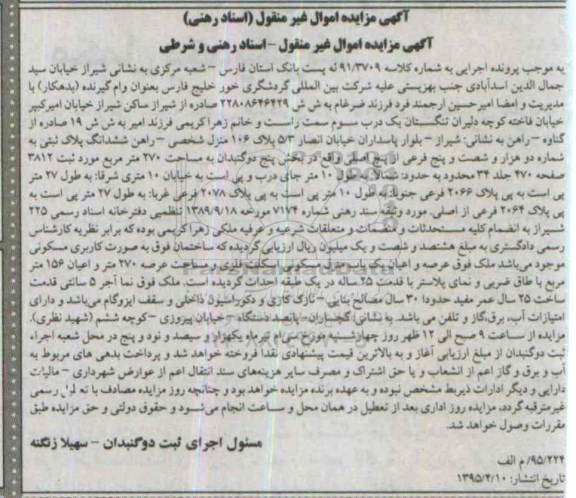 آگهی مزایده اموال غیر منقول (اسناد رهنی)
آگهی مزایده اموال غیر منقول - اسناد رهنی و شرطی
به موجب پرونده اجرایی به شماره کلاسه ۹۱/۳۷۰۹ له پست بانک استان فارس - شعبه مرکزی به نشانی شیراز خیابان سید
جمال الدین اسدآبادی جنب بهزیستی علیه شرکت بین المللی گردشگری خور خلیج فارس بعنوان وام گیرنده (بدهکار) با
مدیریت و امضا امیرحسین ارجمند فرد فرزند ضرغام به ش ش ۲۲۸۰۸۶۴۶۴۲۹ صادره از شیراز ساکن شیراز خیابان امیرکبیر
خیابان فاخته کوچه دلیران تنگستان یک درب سوم سمت راست و خانم زهرا کریمی فرزند امیر به ش ش ۱۹ صادره از
گناوه - راهن به نشانی: شیراز - بلوار پاسداران خیابان انصار ۵/۳ پلاک ۱۰۶ منزل شخصی - راهن ششدانگ پلاک ثبتی به
شماره دو هزار و شصت و پنج فرعی از پنج اصلی واقع در بخش پنج دوگنبدان به مساحت ۲۷۰ متر مربع مورد ثبت ۳۸۱۲
صفحه ۴۷۰ جلد ۳۴ محدود به حدود: شمالا: به طول ۱۰ متر جای درب و پی است به خیابان ۱۰ متری شرقا: به طول ۲۷ متر
پی است به پی پلاک ۲۰۶۶ فرعی جنوبا: به طول ۱۰ متر پی است به پی پلاک ۲۰۷۸ فرعی غربا: به طول ۲۷ متر پی است به
پی پلاک ۲۰۶۴ فرعی از اصلی. مورد وثیقه سند رهنی شماره ۷۱۷۴ مورخه ۱۳۸۹/۹/۱۸ تنظیمی دفترخانه اسناد رسمی ۲۲۵
شیراز به انضمام کلیه مستحدثات و منضمات و متعلقات شرعیه و عرفیه ملکی زهرا کریمی بوده که برابر نظریه کارشناس
رسمی دادگستری به مبلغ هشتصد و شصت و یک میلیون ریال ارزیابی گردیده که ساختمان فوق به صورت کاربری مسکونی
موجود می‌باشد ملک فوق عرصه و اعیان یک باب منزل مسکونی اسکلت فلزی در مساحت عرصه ۲۷۰ متر و اعیان ۱۵۶ متر
مربع با طاق ضربی و نمای پلاستر با قدمت ۲۵ ساله در یک طبقه احداث گردیده است. ملک فوق نما آجر ۵ سانتی قدمت
ساخت ۲۵ سال عمر مفید حدودا ۳۰ سال مصالح بنایی - نازک کاری و دکوراسیون داخلی و سقف ایزوگام می‌باشد و دارای
امتیازات آب، برق، گاز و تلفن می باشد. به نشانی گچساران - پانصد دستگاه - خیابان پیروزی - کوچه ششم (شهید نظری).
مزایده از ساعت ۹ صبح الی ۱۲ ظهر روز چهارشنبه مورخ سی ام تیر ماه یکهزار و سیصد و نود و پنج در محل شعبه اجراء
ثبت دوگنبدان از مبلغ ارزیابی آغاز و به بالاترین قیمت پیشنهادی نقدا فروخته خواهد شد و پرداخت بدهی های مربوط به
آب و برق و گاز اعم از انشعاب و یا حق اشتراک و مصرف سایر هزینه‌های سند انتقال اعم از عوارض شهرداری - مالیات
دارایی و دیگر ادارات ذیربط مشخص نبوده و به عهده برنده مزایده خواهد بود و چنانچه روز مزایده مصادف با تعطیل رسمی
غیرمترقبه گردد، مزایده روز اداری بعد از تعطیل در همان محل و ساعت انجام می‌شود و حقوق دولتی و حق مزایده طبق
مقررات وصول خواهد شد.
مسئول اجرای ثبت دوگنبدان - سهیلا زنگنه
۹۵/۲۲۴/م الف
تاریخ انتشار: ۱۳۹۵/۴/۱۰